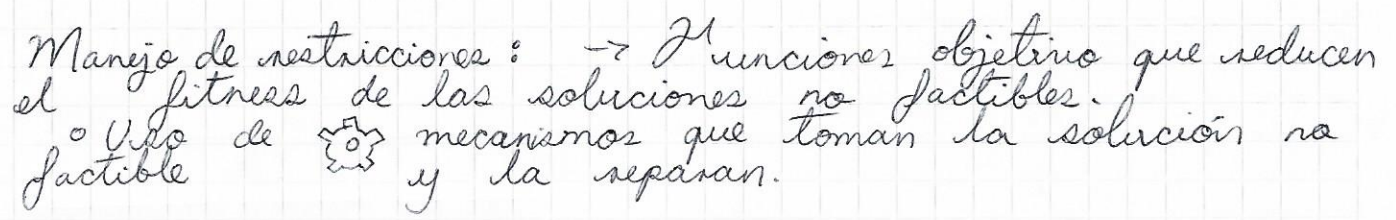 Manejo de restricciones: → Funciones objetivo que reducen
el fitness de las soluciones no factibles.
◦ Uso de mecanismos que toman la solución no
factible y la reparan.